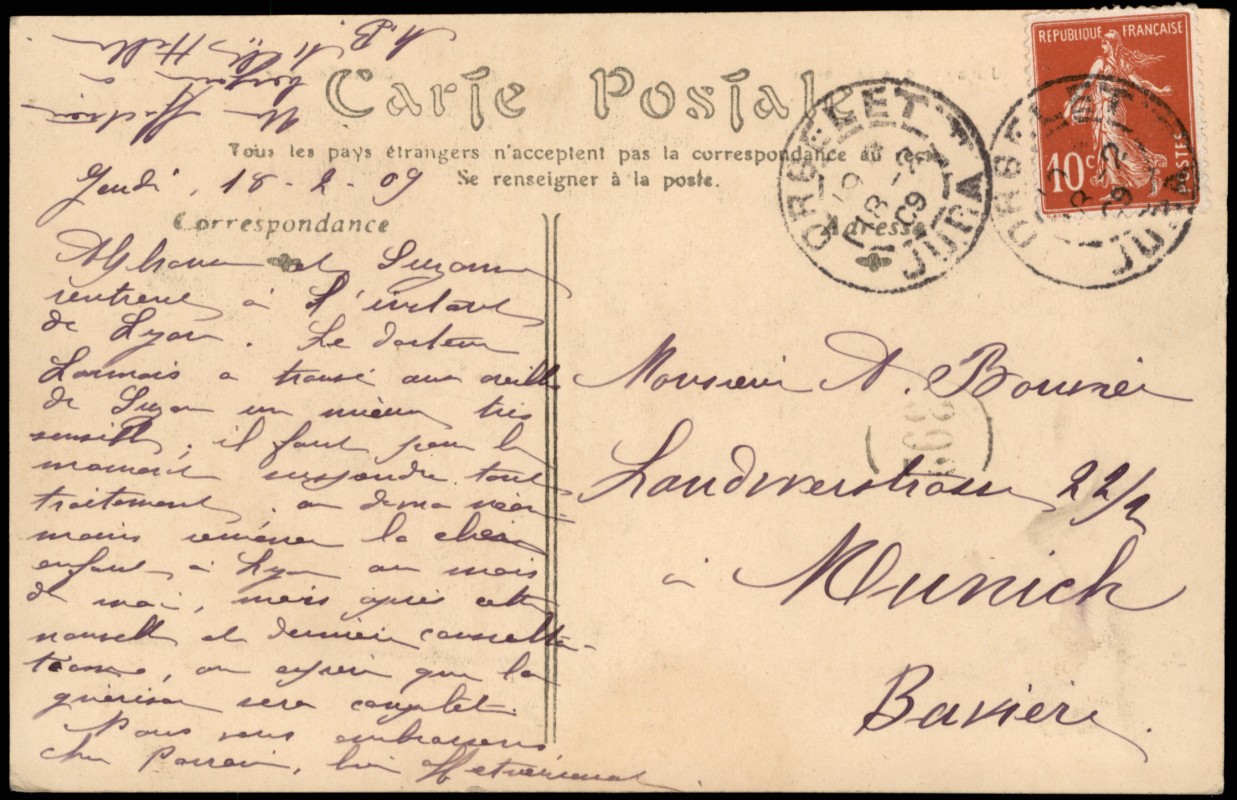 Carte Postale
Tous les pays étrangers n'acceptent pas la correspondance au recto
Se renseigner à la poste.
Jeudi, 18-2-09
Correspondance
Adresse
REPUBLIQUE FRANÇAISE
POSTES
10 c
ORGELET
JURA
18-2
09
ORGELET
JURA
Alphonse et Suzanne
rentrent à l'instant
de Lyon. Le docteur
Lannois a trouvé aux oreilles
de Suzon un mieux très
sensible; il faut pour le
moment suspendre tout
traitement. on devra néan-
moins ramener la chère
enfant à Lyon au mois
de mai, mais après cette
nouvelle et dernière consulta-
tion, on espère que la
guérison sera complète.
Nous vous embrassons
cher Parrain, bien affectueusement
Monsieur A. Bouvier
Landwerstrasse 22/2
à Munich
Bavière.